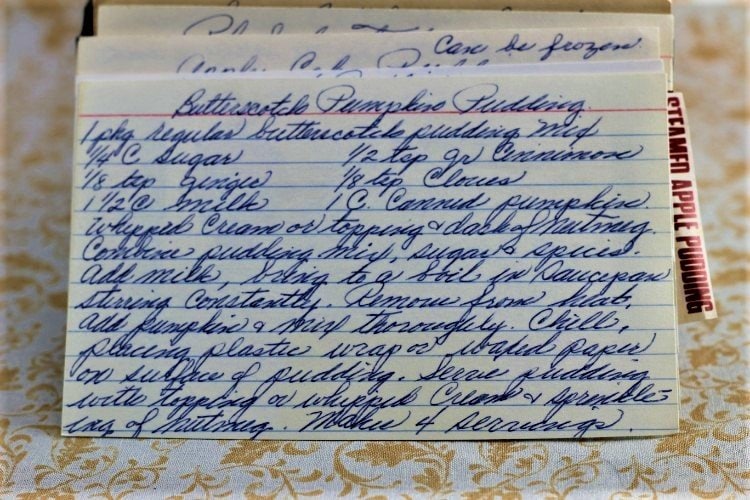 Can be frozen
Butterscotch Pumpkin Pudding.
1 pkg regular butterscotch pudding mix
1/4 C. sugar 1/2 tsp gr Cinnimon
1/8 tsp ginger 1/8 tsp Cloves
1 1/2 C milk 1 C. Canned pumpkin.
Whipped Cream or topping & dash of Nutmeg.
Combine pudding mix, sugar & spices.
Add milk, bring to a boil in Saucepan
stirring Constantly. Remove from heat,
add pumpkin & mix thoroughly. Chill,
placing plastic wrap or waxed paper
on surface of pudding. Serve pudding
with topping or whipped Cream & sprinkle-
ing of Nutmeg. Makes 4 servings.
STEAMED APPLE PUDDING